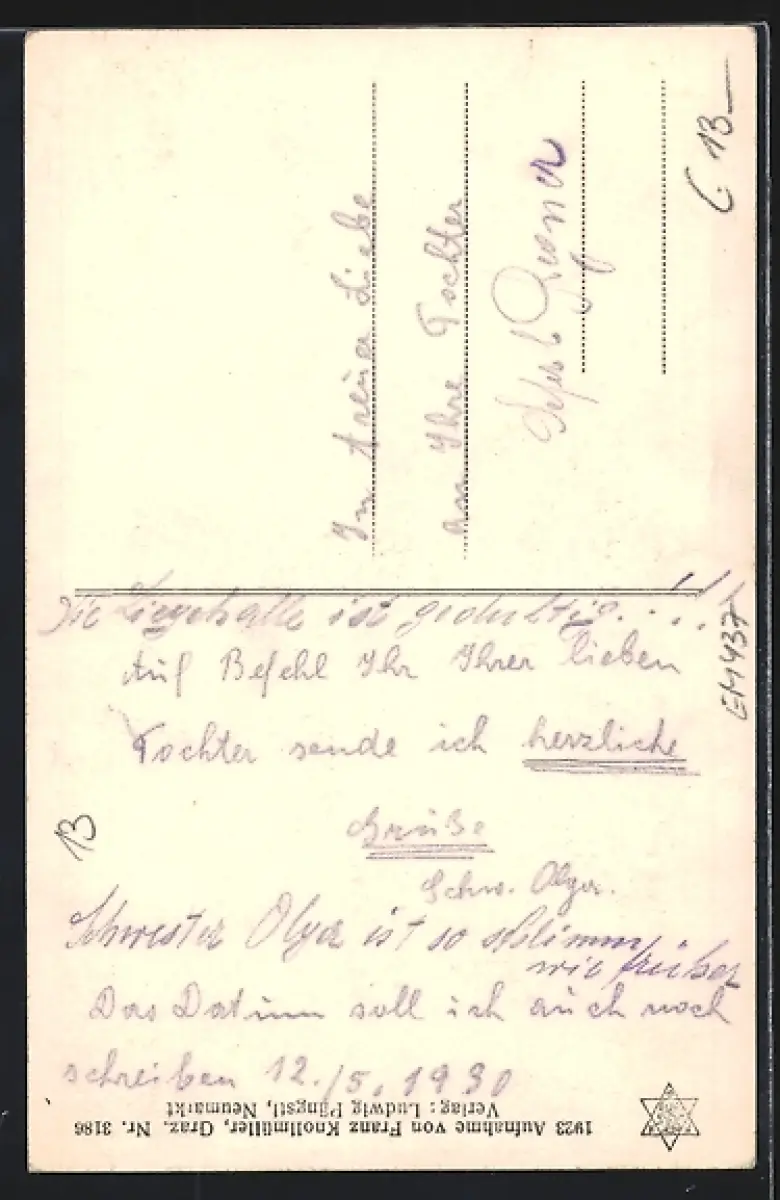 Die Liegehalle ist geduldig....!!
Auf Befehl Ihr Ihrer lieben
Tochter sende ich herzliche
Grüße
Schw. Olga.
Schwester Olga ist so schlimm
wie früher
Das Datum soll ich auch noch
schreiben 12./5. 1930
In treuer Liebe
von Ihre Tochter
C 13
EM437
13
1923 Aufnahme von Franz Knollmüller, Graz. Nr. 3186
Verlag: Ludwig Püngstl, Neumarkt